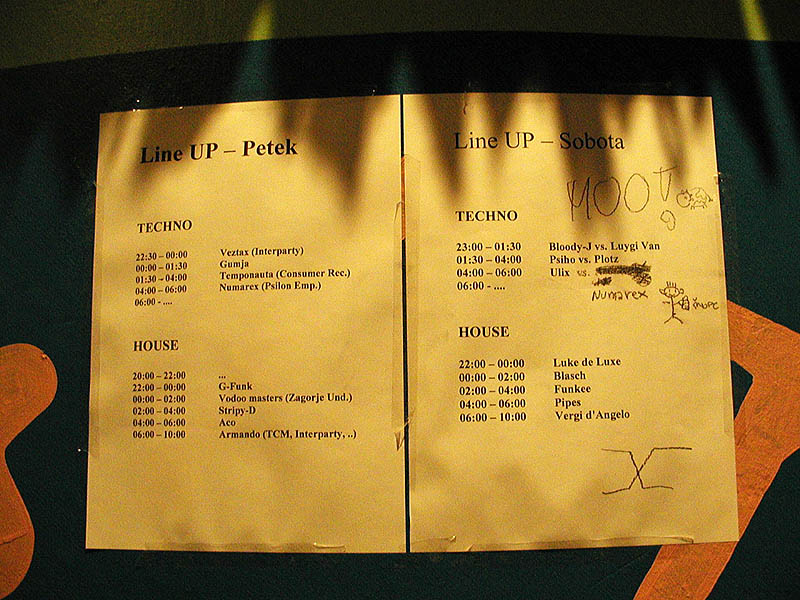 Line UP – Petek
TECHNO
22:30 – 00:00 Veztax (Interparty)
00:00 – 01:30 Gumja
01:30 – 04:00 Temponauta (Consumer Rec.)
04:00 – 06:00 Numarex (Psilon Emp.)
06:00 - ....
HOUSE
20:00 – 22:00 ...
22:00 – 00:00 G-Funk
00:00 – 02:00 Vodoo masters (Zagorje Und.)
02:00 – 04:00 Stripy-D
04:00 – 06:00 Aco
06:00 – 10:00 Armando (TCM, Interparty, ..)
Line UP – Sobota
TECHNO
23:00 – 01:30 Bloody-J vs. Luygi Van
01:30 – 04:00 Psiho vs. Plotz
04:00 – 06:00 Ulix vs.
06:00 - ....
Numarex
HOUSE
22:00 – 00:00 Luke de Luxe
00:00 – 02:00 Blasch
02:00 – 04:00 Funkee
04:00 – 06:00 Pipes
06:00 – 10:00 Vergi d'Angelo